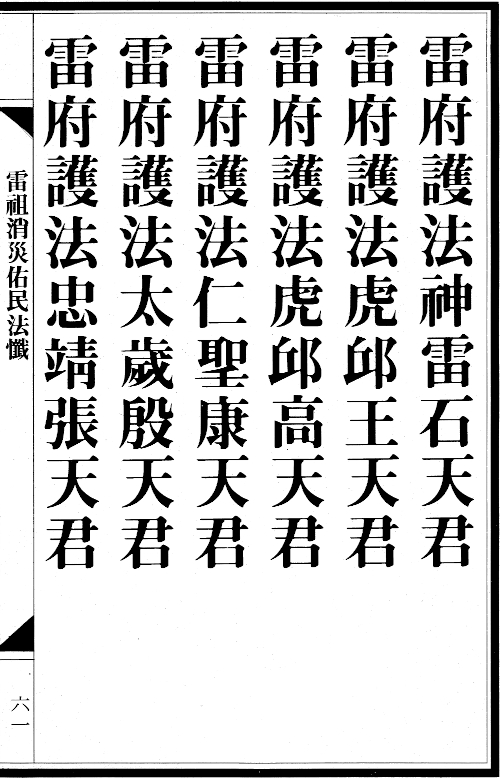 雷府護法神雷石天君
雷府護法虎邱王天君
雷府護法虎邱高天君
雷府護法仁聖康天君
雷府護法太歲殷天君
雷府護法忠靖張天君
雷祖消災佑民法懺
六一